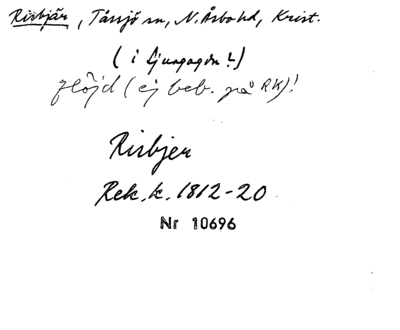 Risbjär, Tåssjö sn, N. Åsbo hd, Krist.
( i Ljungagön ? )
flöjd (ej beb. på RK)!
Risbjer
Rek. k. 1812-20
Nr 10696